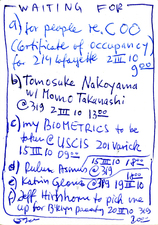 WAITING FOR
a) for people re, COO
(Certificate of occupancy)
for 214 Lafayette 2 III 10
9:00
b) Tomosuke Nakoyama
w/ Momo Takahashi
@319 2 III 10 13:00
c) my BIOMETRICS to be
taken @ USCIS 201 Varick
15 III 10 09:00
15 III 10 18:00
d)
@319
e) Katrin
@319 19 III 10
f) Jeff
up for 20 III 10